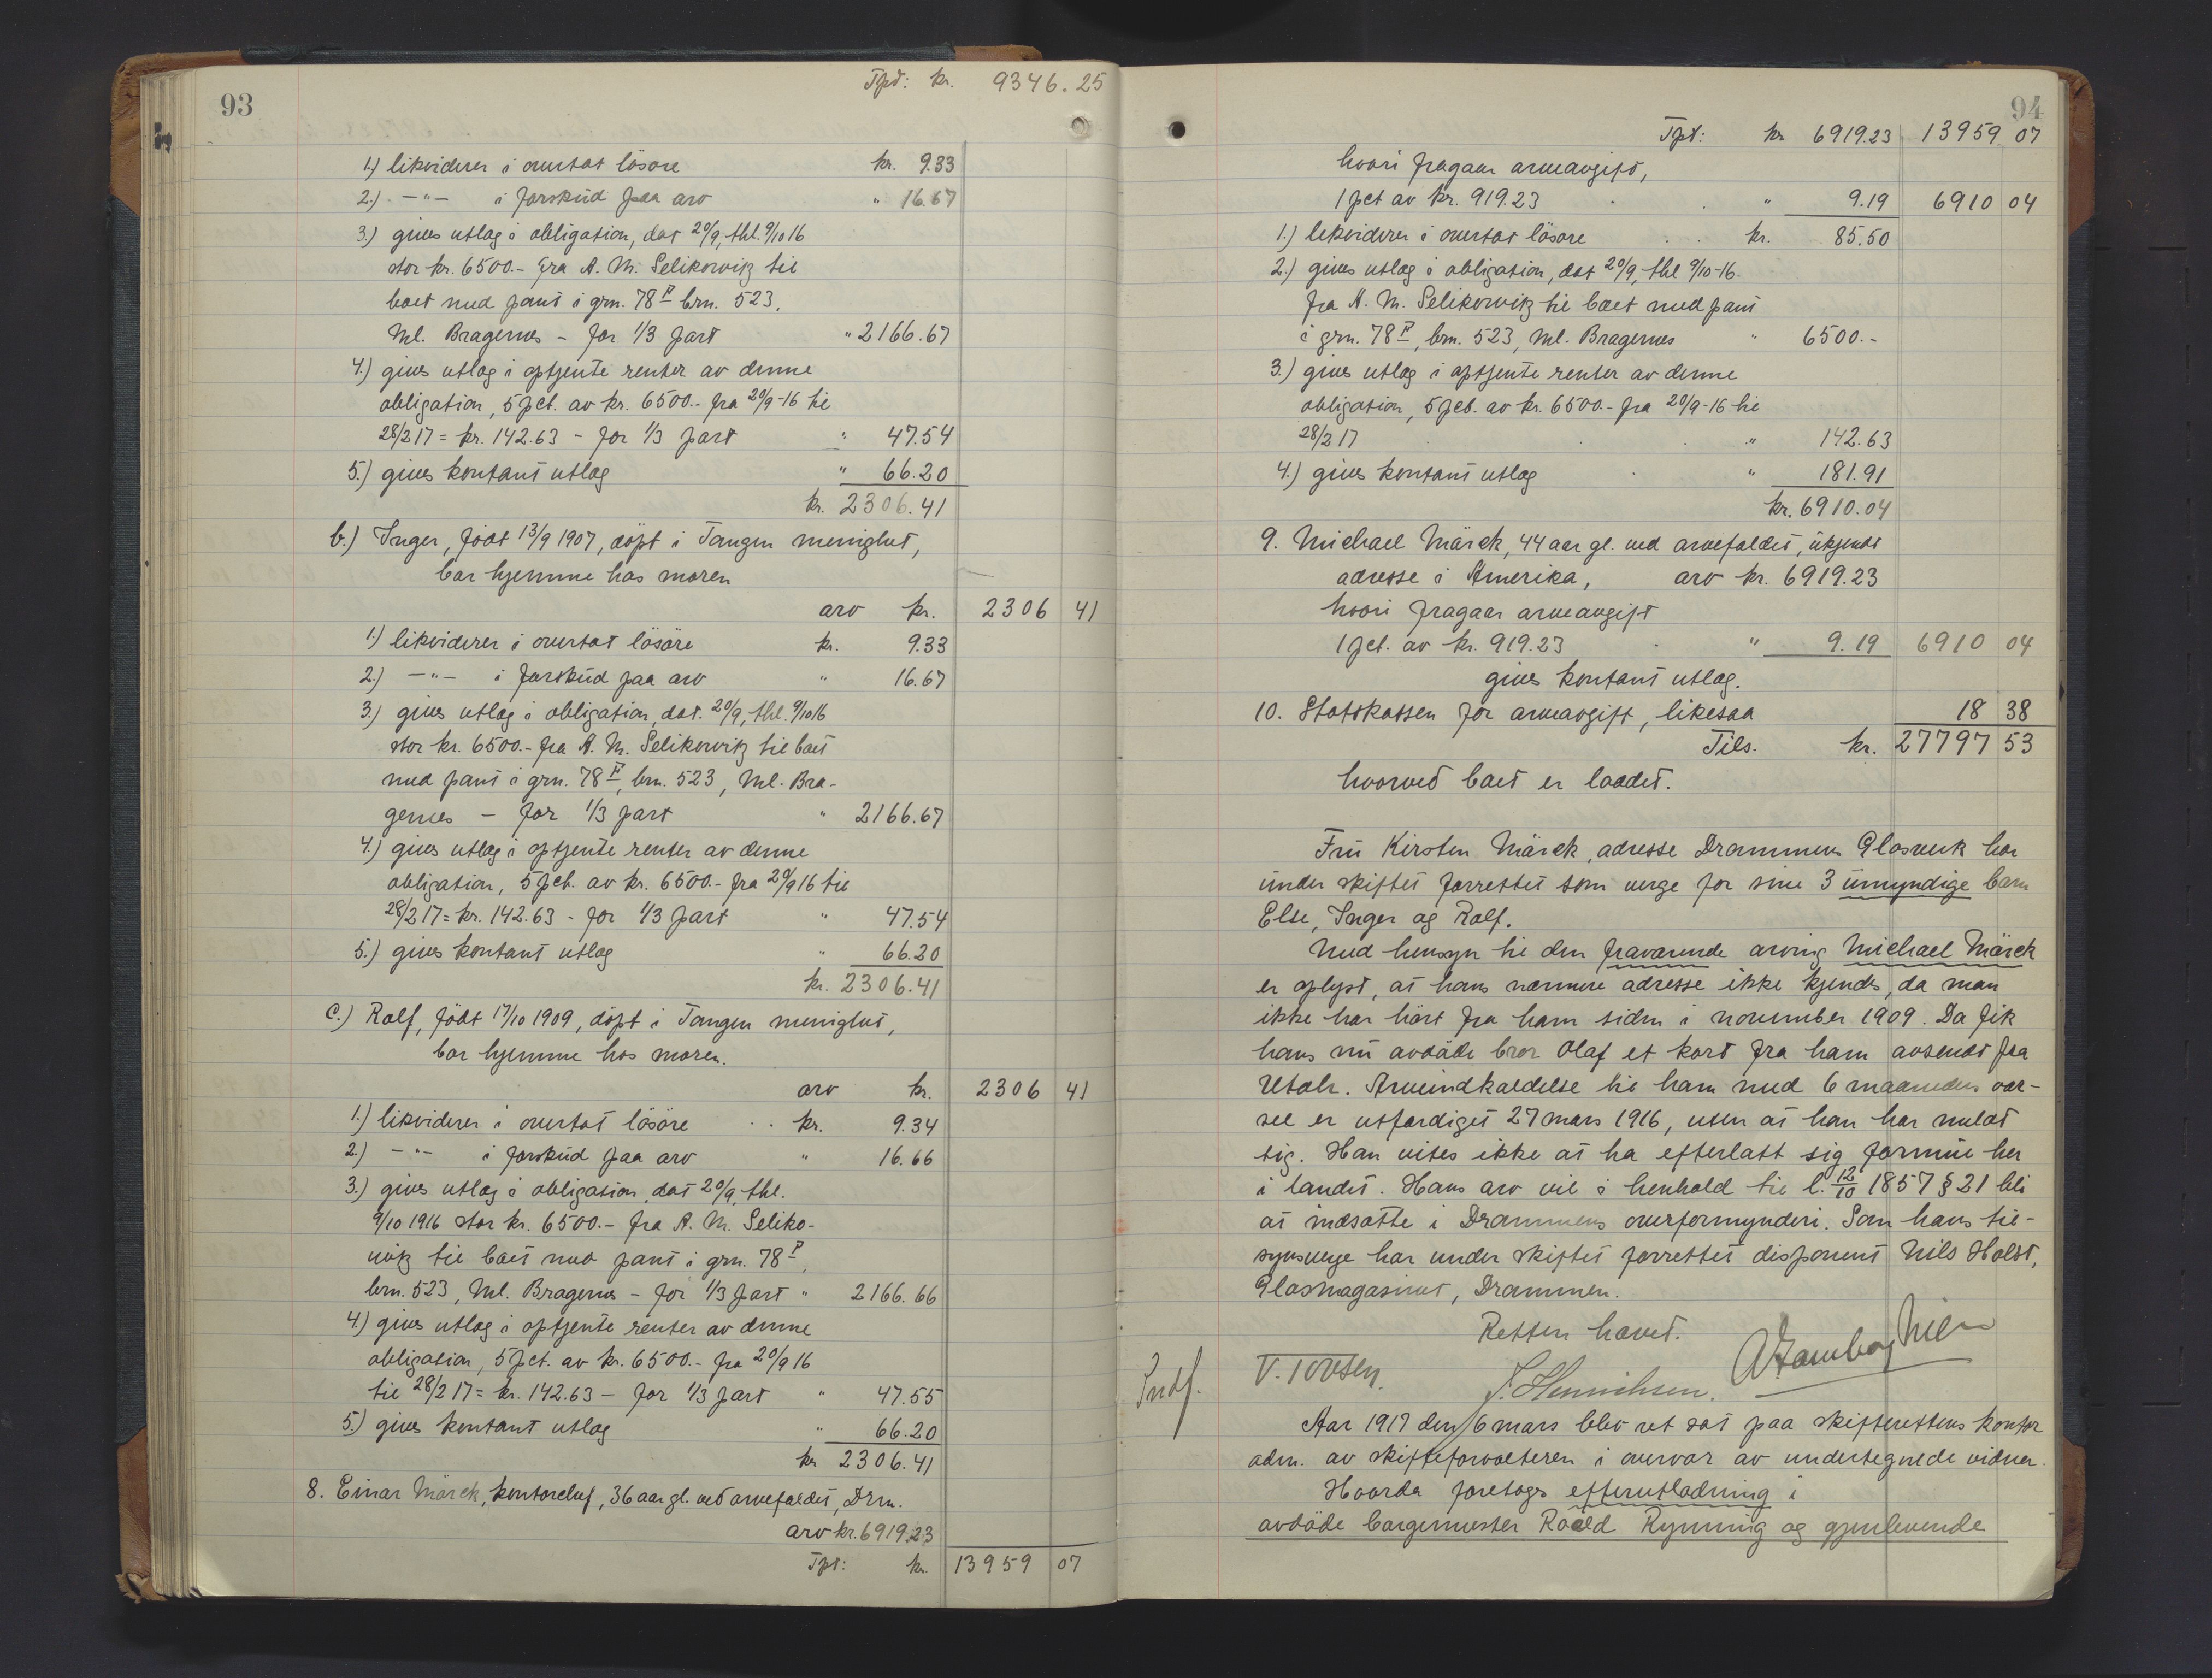 93
Tpt: kr. 9346.25
1.) likviderer i overtat lösöre kr. 9.33
2.) -"- i forskud paa arv " 16.67
3.) gives utlæg i obligation, dat 20/9, thl. 9/10 16
stor kr. 6500.- fra A. M. Selikowitz til
boet med pant i grn. 78 brn. 523,
Ml. Bragernes - for 1/3 part " 2166.67
4.) gives utlæg i optjente renter av denne
obligation, 5 pct. av kr. 6500.- fra 20/9-16 til
28/2 17 = kr. 142.63 - for 1/3 part " 47.54
5.) gives kontant utlæg " 66.20
kr. 2306.41
b.) Inger, födt 13/9 1907, döpt i Tangen menighet,
bor hjemme hos moren
arv kr. 2306 41
1.) likviderer i overtat lösöre kr. 9.33
2.) -"- i forskud paa arv " 16.67
3.) gives utlæg i obligation, dat. 20/9, thl. 9/10 16
stor kr. 6500.- fra A. M. Selikowitz til boet
med pant i grn. 78, brn. 523, Ml. Bra-
gernes - for 1/3 part " 2166.67
4.) gives utlæg i optjente renter av denne
obligation, 5 pct. av kr. 6500.- fra 20/9 16 til
28/2 17 = kr. 142.63 - for 1/3 part " 47.54
5.) gives kontant utlæg " 66.20
kr. 2306.41
c.) Rolf, födt 17/10 1909, döpt i Tangen menighet,
bor hjemme hos moren.
arv kr. 2306 41
1.) likviderer i overtat lösöre . . kr. 9.34
2.) -"- i forskud paa arv " 16.66
3.) gives utlæg i obligation dat 20/9, thl.
9/10 1916 stor kr. 6500.- fra A. M. Seliko-
witz til boet med pant i grn. 78,
brn. 523, Ml. Bragernes - for 1/3 part " 2166.66
4.) gives utlæg i optjente renter av denne
obligation, 5 pct. av kr. 6500.- fra 20/9 16
til 28/2 17 = kr. 142.63 - for 1/3 part " 47.55
5.) gives kontant utlæg " 66.20
kr 2306.41
8. Einar Märck, kontorchef, 36 aar gl. ved arvefaldet, Drm.
arv kr. 6919.23
Tpt: kr. 13959 07
94
Tpt: kr 6919.23 13959 07
hvori fragaar arveavgift,
1 pct av kr. 919.23 . . " 9.19 6910 04
1.) likviderer i overtat lösöre . . kr. 85.50
2.) gives utlæg i obligation, dat 20/9, thl 9/10-16.
fra A. M. Selikowitz til boet med pant
i grn. 78, brn. 523, Ml. Bragernes " 6500.-
3.) gives utlæg i optjente renter av denne
obligation, 5 pct. av kr. 6500.- fra 20/9-16 til
28/2 17 . . . " 142.63
4.) gives kontant utlæg . " 181.91
kr. 6910.04
9. Michael Märck, 44 aar gl. ved arvefaldet, ukjendt
adresse i Amerika, arv kr. 6919.23
hvori fragaar arveavgift
1 pct. av kr. 919.23 . " 9.19 6910 04
gives kontant utlæg.
10. Statskassen for arveavgift, likesaa 18 38
Tils. kr. 27797 53
hvorved boet er ladet.
Fru Kirsten Märck, adresse Drammens Glasverk har
under skiftet forrettet som verge for sine 3 umyndige barn
Else, Inger og Rolf.
Med hensyn til den fraværende arving Michael Märck
er oplyst, at hans nærmere adresse ikke kjendes, da man
ikke har hört fra ham siden i november 1909. Da fik
hans nu avdöde bror Olaf et kort fra ham avsendt fra
Utah. Arveindkaldelse til ham med 6 maaneders var-
sel er utfærdiget 27 mars 1916, uten at han har meldt
sig. Han vites ikke at ha efterlatt sig formue her
i landet. Hans arv vil i henhold til l. 12/10 1857 § 21 bli
at indsætte i Drammens overformynderi. Som hans til-
synsverge har under skiftet forrettet disponent Nils Holst,
Glasmagasinet, Drammen.
Retten hævet.
Indf.
Aar 1917 den 6 mars blev ret sat paa skifterettens kontor
adm. av skifteforvalteren i overvær av undertegnede vidner.
Hvorda foretoges efterutlodning i
avdöde borgermester Roald Rynning og gjenlevende